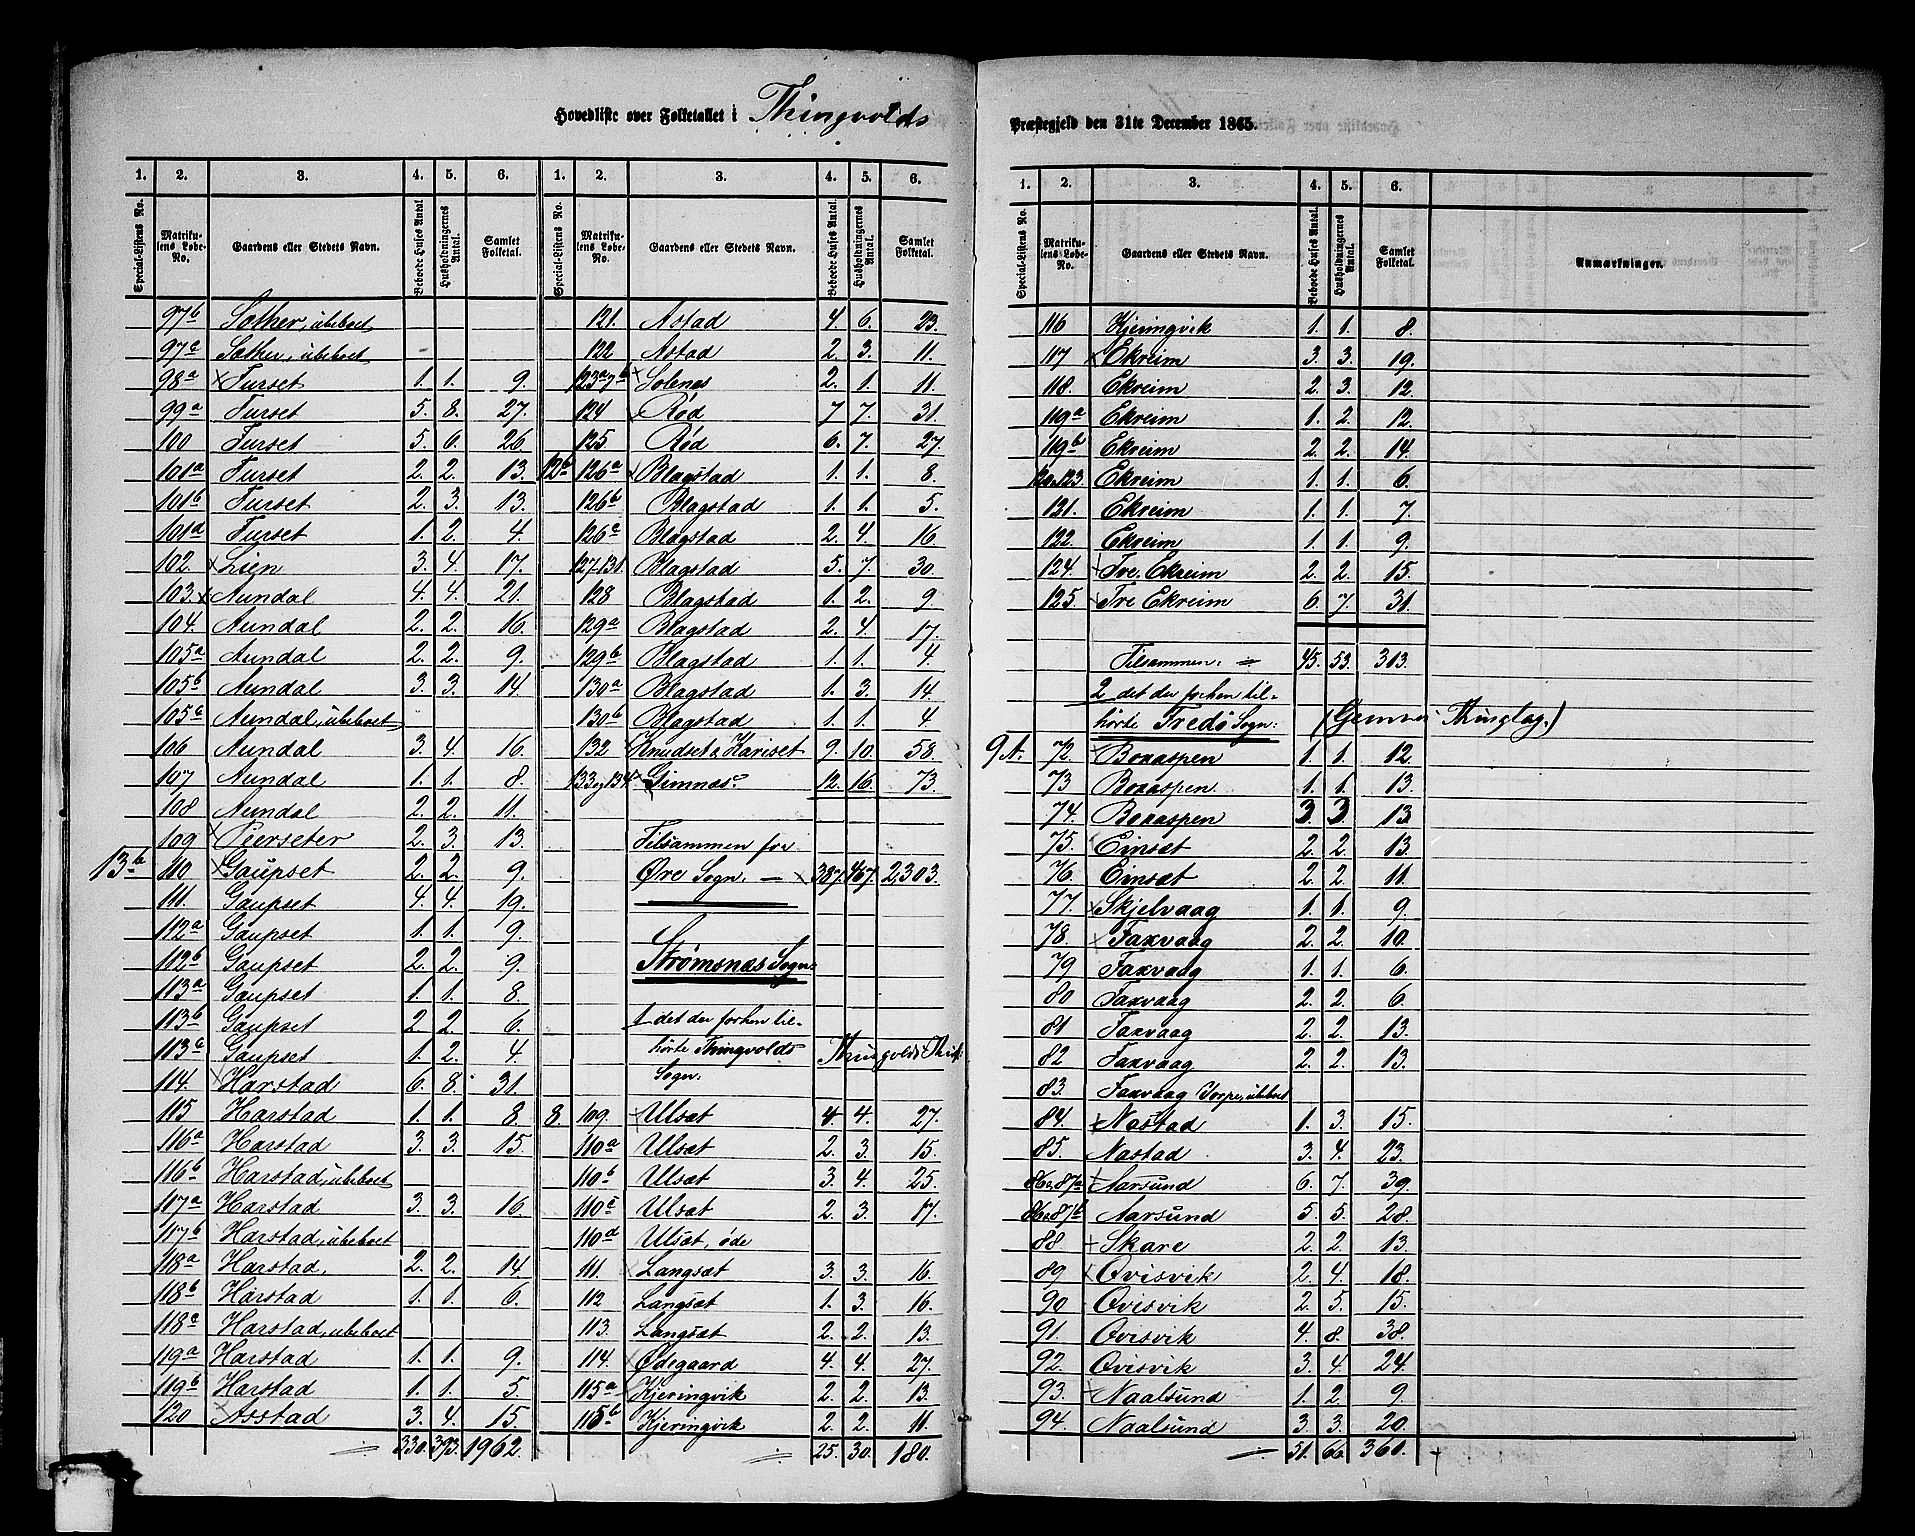 Hovedliste over Folketallet i Thingvolds
Præstegjeld den 31te December 1865.
1. 2. 3. 4. 5. 6. 1. 2. 3. 4. 5. 6.
Special-Listens No. Matrikulens Løbe-No. Gaardens eller Stedets Navn. Beboede Huses Antal. Husholdningernes Antal. Samlet Folketal. Special-Listens No. Matrikulens Løbe-No. Gaardens eller Stedets Navn. Beboede Huses Antal. Husholdningernes Antal. Samlet Folketal.
97b Sæther, ubeboet
97c Sæther, ubeboet
98a Furset 1. 1. 9.
99a Furset 5. 8. 27.
100 Furset 5. 6. 26.
101a Furset 2. 2. 13.
101b Furset 2. 3. 13.
101d Furset 1. 2. 4.
102. Lien 3. 4. 17.
103. Aundal 4. 4. 21.
104. Aundal 2. 2. 16.
105a Aundal 2. 2. 9.
105b Aundal 3. 3. 14.
105c Aundal, ubeboet
106 Aundal 3. 4. 16.
107 Aundal 1. 1. 8.
108 Aundal 2. 2. 11.
109 Peerseter 2. 3. 13.
13b 110 Gaupset 2. 2. 9.
111. Gaupset 4. 4. 19.
112a Gaupset 1. 1. 9.
112b Gaupset 2. 2. 9.
113a Gaupset 1. 1. 8.
113b Gaupset 2. 2. 6.
113c Gaupset 1. 2. 4.
114. Harstad 6. 8. 31.
115 Harstad 1. 1. 8
116a Harstad 3. 3. 15.
116b Harstad, ubeboet
117a Harstad 3. 3. 16.
117b Harstad, ubeboet
118a Harstad. 2. 2. 14.
118b Harstad 1. 1. 6.
118c Harstad, ubeboet
119a Harstad 1. 1. 9.
119b Harstad 1. 1. 5.
120 Aastad 3. 4. 15.
330. 393. 1962.
121. Astad 4. 6. 23.
122 Astad 2. 3. 11.
123a & b Solenæs 2. 1. 11.
124 Rød 7 7. 31.
125 Rød 6. 7. 27.
12b 126a Blagstad 1. 1. 8.
126b Blagstad 1. 1. 5.
126a Blagstad 2. 4. 16
127-131. Blagstad 5. 7. 30.
128 Blagstad 1. 2. 9.
129a Blagstad 2. 4. 17.
129b Blagstad 1. 1. 4.
130a Blagstad 1. 3. 14.
130b Blagstad 1. 1. 4.
132 Knudset & Hariset 9. 10. 58.
133 og 134 Gimnæs 12. 16. 73.
Tilsammen for
Øre Sogn. 387. 467. 2,303.
Strømsnæs Sogn:
1 det der forhen til-
hørte Thingvolds
Sogn.
8. 109. Ulsæt 4 4. 27.
110a Ulsæt 2. 3. 15.
110b Ulsæt 3. 4. 25.
110c Ulsæt 2. 3. 17.
110d Ulsæt, øde
111. Langsæt 3. 3. 16.
112 Langsæt 1. 3. 16.
113. Langsæt 2. 2. 13.
114. Ødegaard 4. 4. 27.
115a Kjeringvik 2. 2. 13.
115b Kjeringvik 2. 2. 11.
25. 30. 180.
1. 2. 3. 4. 5. 6.
Special-Listens No. Matrikulens Løbe-No. Gaardens eller Stedets Navn. Beboede Huses Antal. Husholdningernes Antal. Samlet Folketal. Anmærkninger.
116 Kjeringvik 1. 1. 8.
117 Ekreim 3. 3. 19.
118. Ekreim 2. 3. 12.
119a Ekreim 1. 2. 12.
119b Ekreim 2. 2. 14.
120 & 123. Ekreim 1. 1. 6.
121. Ekreim 1. 1. 7.
122. Ekreim 1. 1. 9.
124. Tre, Ekreim 2. 2. 15.
125. Tre Ekreim 6. 7. 31.
Tilsammen. 45. 53. 313.
2 det der forhen til-
hörte Fredö Sogn:
9A. 72. Boraspen 1. 1. 12.
73 Boraspen 1. 1. 13.
74. Boraspen 3. 3 13
75. Einsæt 2. 2. 13.
76. Einsæt 2. 2. 11.
77. Skjelvaag 1. 1. 9.
78. Faxvaag 2. 2. 10.
79 Faxvaag 1. 1. 6.
80 Faxvaag 2. 2. 6.
81 Faxvaag 2. 2. 13.
82 Faxvaag 2. 2. 13.
83. Faxvaag Torpe, ubeboet
84. Næstad 1. 3. 15.
85. Næstad 3. 4. 23.
86a, 87a Aarsund 6. 7. 39.
86 & 87b Aarsund 5. 5. 28.
88 Skare 2. 2. 13.
89 Qvisvik 2. 4. 18.
90 Qvisvik 2. 5. 15.
91. Qvisvik 4. 8. 38.
92. Qvisvik 3. 4. 24.
93. Naalsund 1. 2. 9.
94. Naalsund 3. 3. 20.
51. 66. 360.